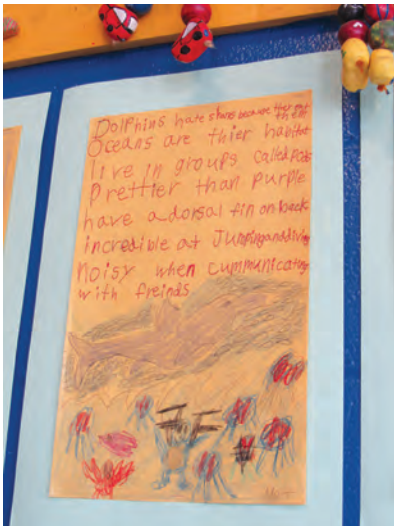 Dolphins hate sharks because they eat them
Oceans are thier habitat
live in groups called Pods
Prettier than purple
have a dorsal fin on back
incredible at Jumping and diving
noisy when cummunicating
with freinds